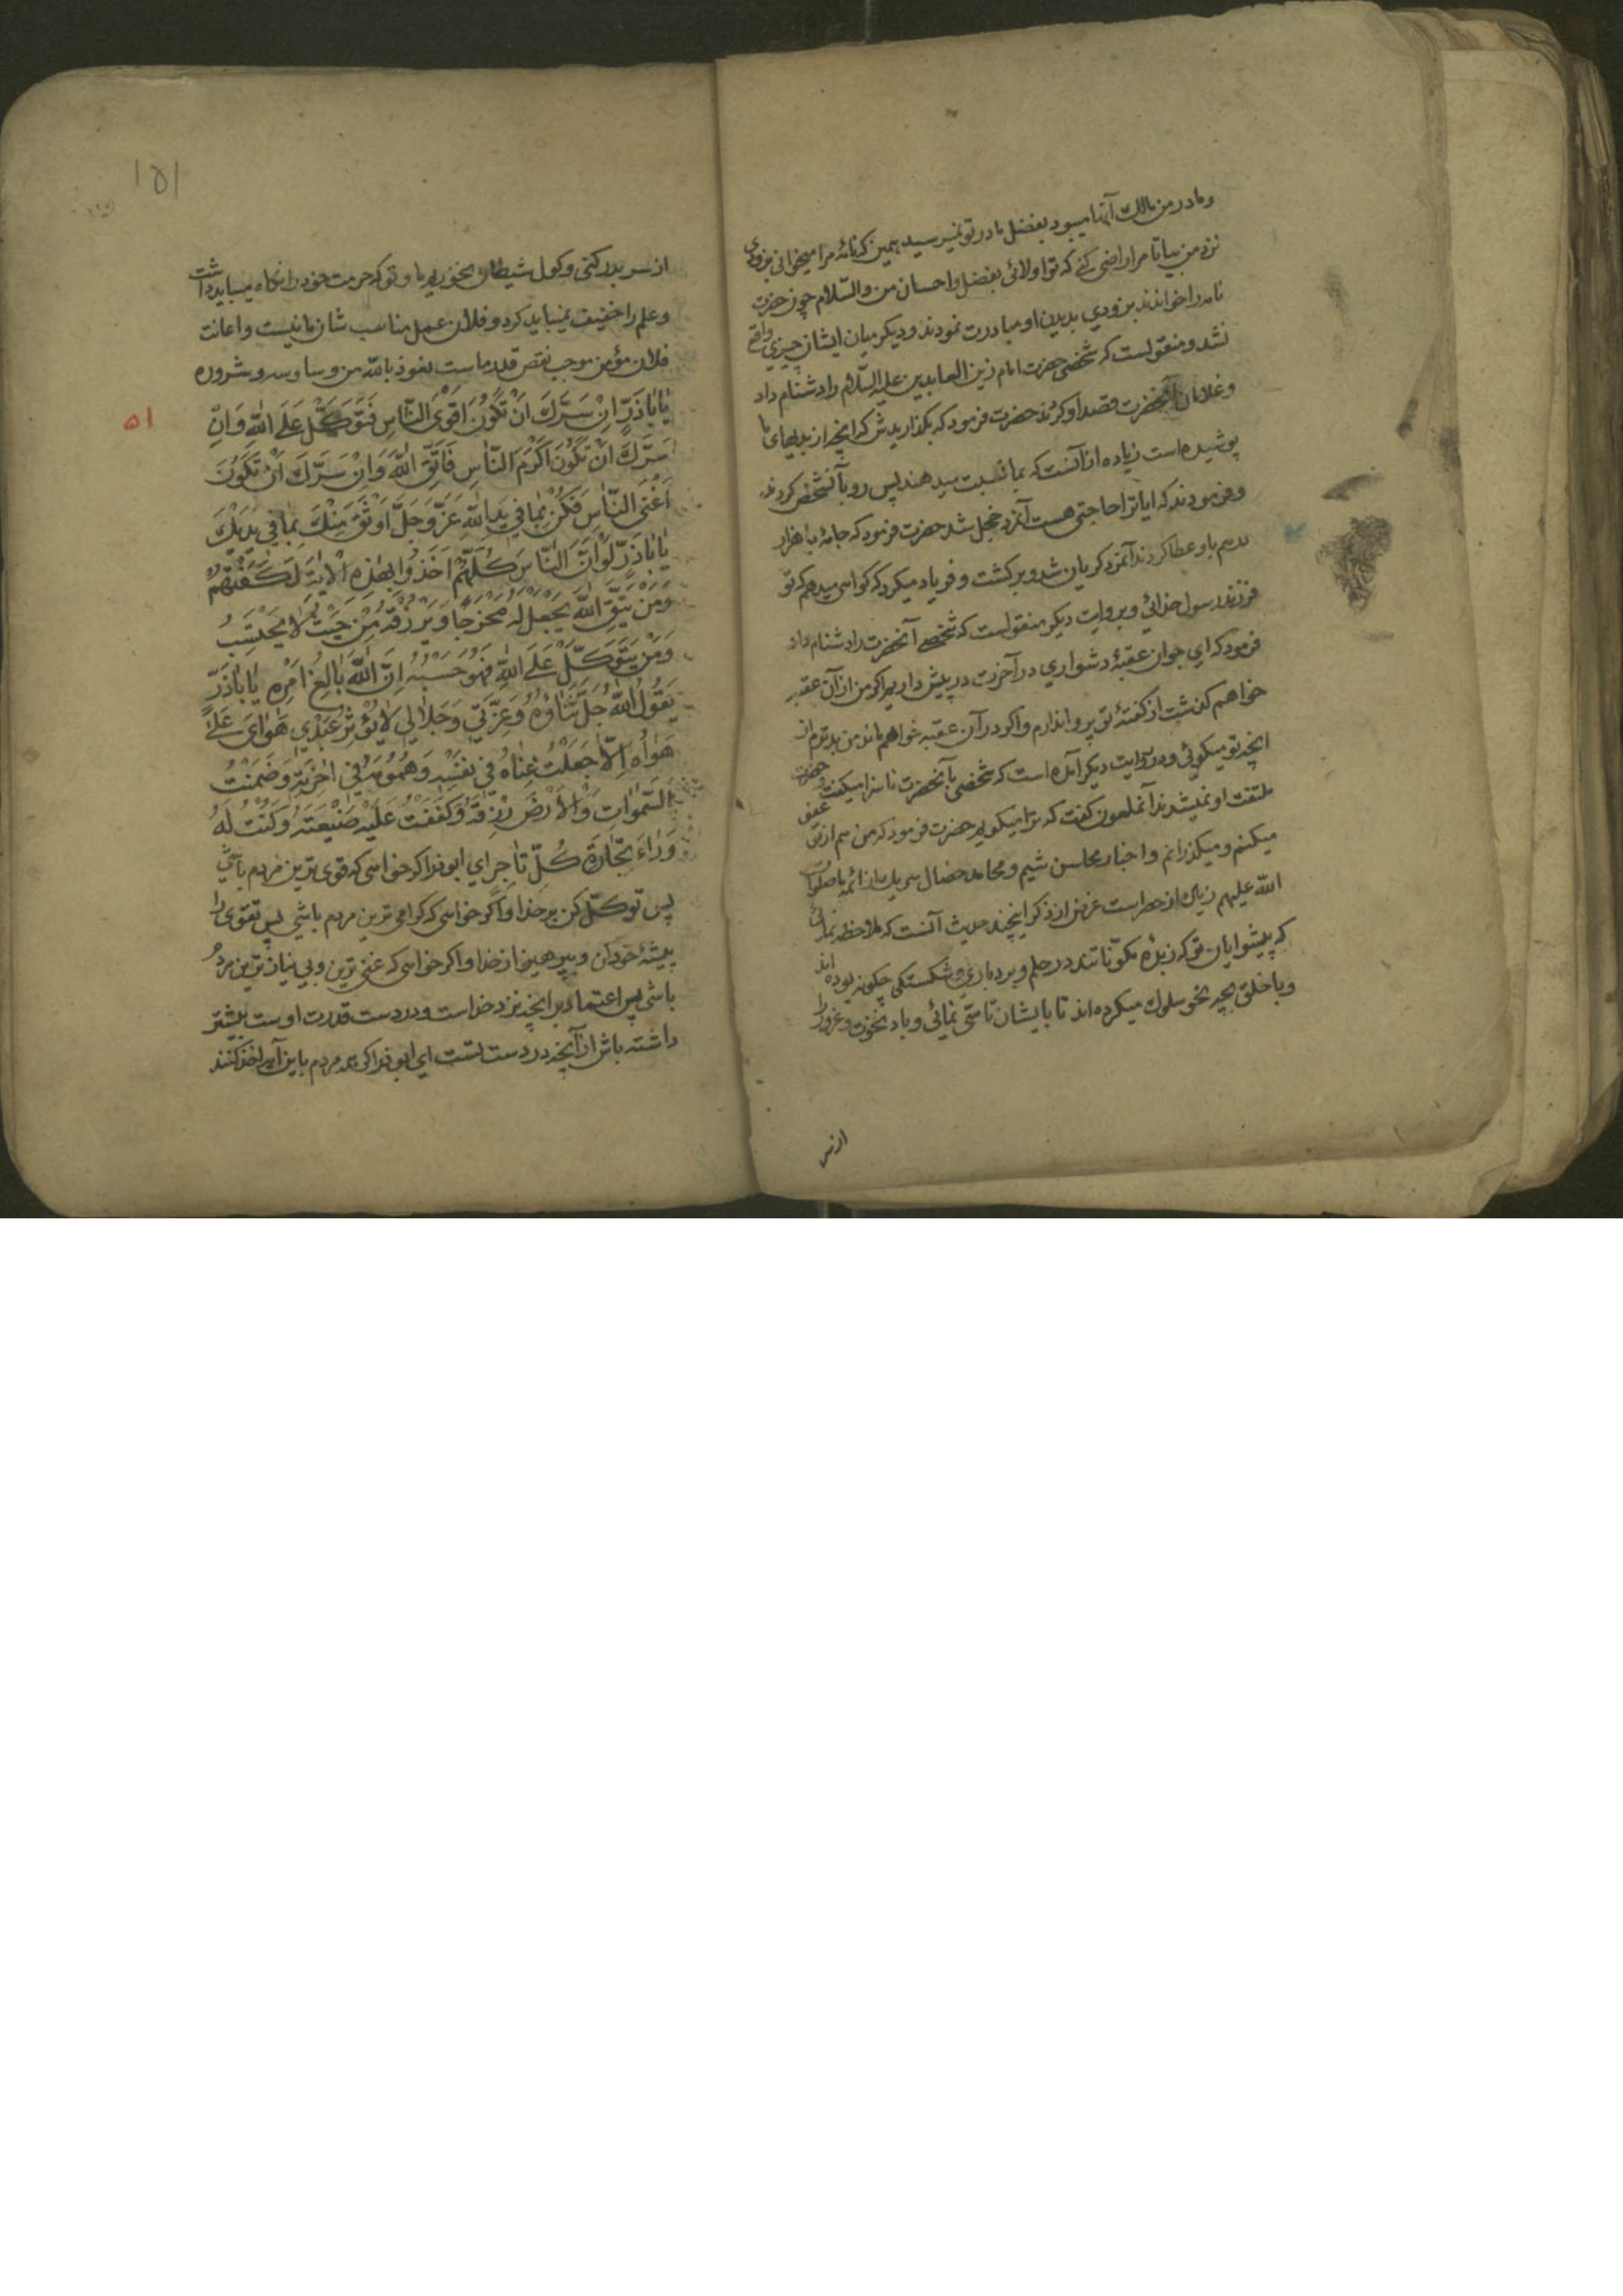 و مادر من مالک آنها میبود بفضل مادر تو نمیرسید همین که نامهٔ مرا میخوانی بزودی
نزد من بیا تا مرا راضی کنی که تو اولائی بفضل و احسان من والسّلام چون حضرت
نامه را خواندند بزودی بدیدن او مبادرت نمودند و دیکر میان ایشان چیزی واقع
نشد و منقولست که شخصی حضرت امام زین العابدین علیه السّلام را دشنام داد
و غلامان آنحضرت قصد او کردند حضرت فرمود که بگذاریدش که انچه از بدیهای ما
پوشیده است زیاده از آنست که بما نسبت میدهند پس رو بآنشخص کردند
و فرمودند که ایا ترا حاجتی هست آنمرد خجل شد حضرت فرمود که جامهٔ با هزار
درهم باو عطا کردند آنمرد کریان شد و برکشت و فریاد میکرد که کواهی میدهم که تو
فرزند رسول خدائی و بروایت دیکر منقولست که شخصی آنحضرت را دشنام داد
فرمود که ای جوان عقبهٔ دشواری در آخرت در پیش داریم اکر من از آن عقبه
خواهم کذشت از کفتهٔ تو پروا ندارم و اکر در آن عقبه خواهم ماند من بدترم از
انچه تو میکوئی و در روایت دیکر آمده است که شخصی بآنحضرت ناسزا میکفت حضرت
ملتفت او نمیشدند آنملعون کفت که ترا میکویم حضرت فرمود که من هم از تو عفو
میکنم و میکذرانم و اخبار محاسن شیم و محامد خصال هر یک از ائمهٔ ما صلوات
الله علیهم زیاده از حصر است غرض از ذکر اینچند حدیث آنست که ملاحظه نمائی
که پیشوایان تو که زبدهٔ مکوّناتند در حلم و بردباری و شکستکی چکونه بوده اند
و با خلق بچه نحو سلوک میکرده اند تا بایشان تاسّی نمائی و باد نخوت و غرور را
از سر
۱۵۱
از سر بدر کنی و کول شیطان نخوری ما و تو که حرمت خود را نکاه میباید داشت
و علم را خفیف نمیباید کرد و فلان عمل مناسب شان ما نیست و اعانت
فلان مؤمن موجب نقص قدر ماست نعوذ بالله من وساوسه و شروره
۵۱
یا اباذَرّ اِنْ سَرَّكَ اَنْ تَكُونَ اَقْوَى النّاسِ فَتَوَكَّلْ عَلَى اللهِ وَاِنْ
سَرَّكَ اَنْ تَكُونَ اَكْرَمَ النّاسِ فَاتَّقِ اللهَ وَاِنْ سَرَّكَ اَنْ تَكُونَ
اَغْنَى النّاسِ فَكُنْ بِما فِي يَدِ اللهِ عَزَّ وَجَلَّ اَوْثَقَ مِنْكَ بِما فِي يَدَيْكَ
يا اباذَرّ لَوْ اَنَّ النّاسَ كُلَّهُمْ اَخَذُوا بِهٰذِهِ الْآيَةِ لَكَفَتْهُمْ
وَمَنْ يَتَّقِ اللهَ يَجْعَلْ لَهُ مَخْرَجًا وَيَرْزُقْهُ مِنْ حَيْثُ لا يَحْتَسِبُ
وَمَنْ يَتَوَكَّلْ عَلَى اللهِ فَهُوَ حَسْبُهُ اِنَّ اللهَ بالِغُ اَمْرِهِ يا اباذَرّ
يَقُولُ اللهُ جَلَّ ثَناؤُهُ وَعِزَّتِي وَجَلالِي لا يُؤْثِرُ عَبْدِي هَوايَ عَلى
هَواهُ اِلّا جَعَلْتُ غِناهُ فِي نَفْسِهِ وَهُمُومَهُ فِي آخِرَتِهِ وَضَمَّنْتُ
السَّمٰواتِ وَالْاَرْضَ رِزْقَهُ وَكَفَفْتُ عَلَيْهِ ضَيْعَتَهُ وَكُنْتُ لَهُ
وَراءَ تِجارَةِ كُلِّ تاجِرٍ ای ابوذر اکر خواهی که قوی ترین مردم باشی
پس توکّل کن بر خدا و اکر خواهی که کرامی ترین مردم باشی پس تقوی را
پیشهٔ خود کن و بپرهیز از خدا و اکر خواهی که غنی ترین و بی نیاز ترین مردم
باشی پس اعتماد بر انچه نزد خداست و در دست قدرت اوست بیشتر
داشته باش از آنچه در دست تست ای ابوذر اکر همه مردم باین آیه اخذ کنند